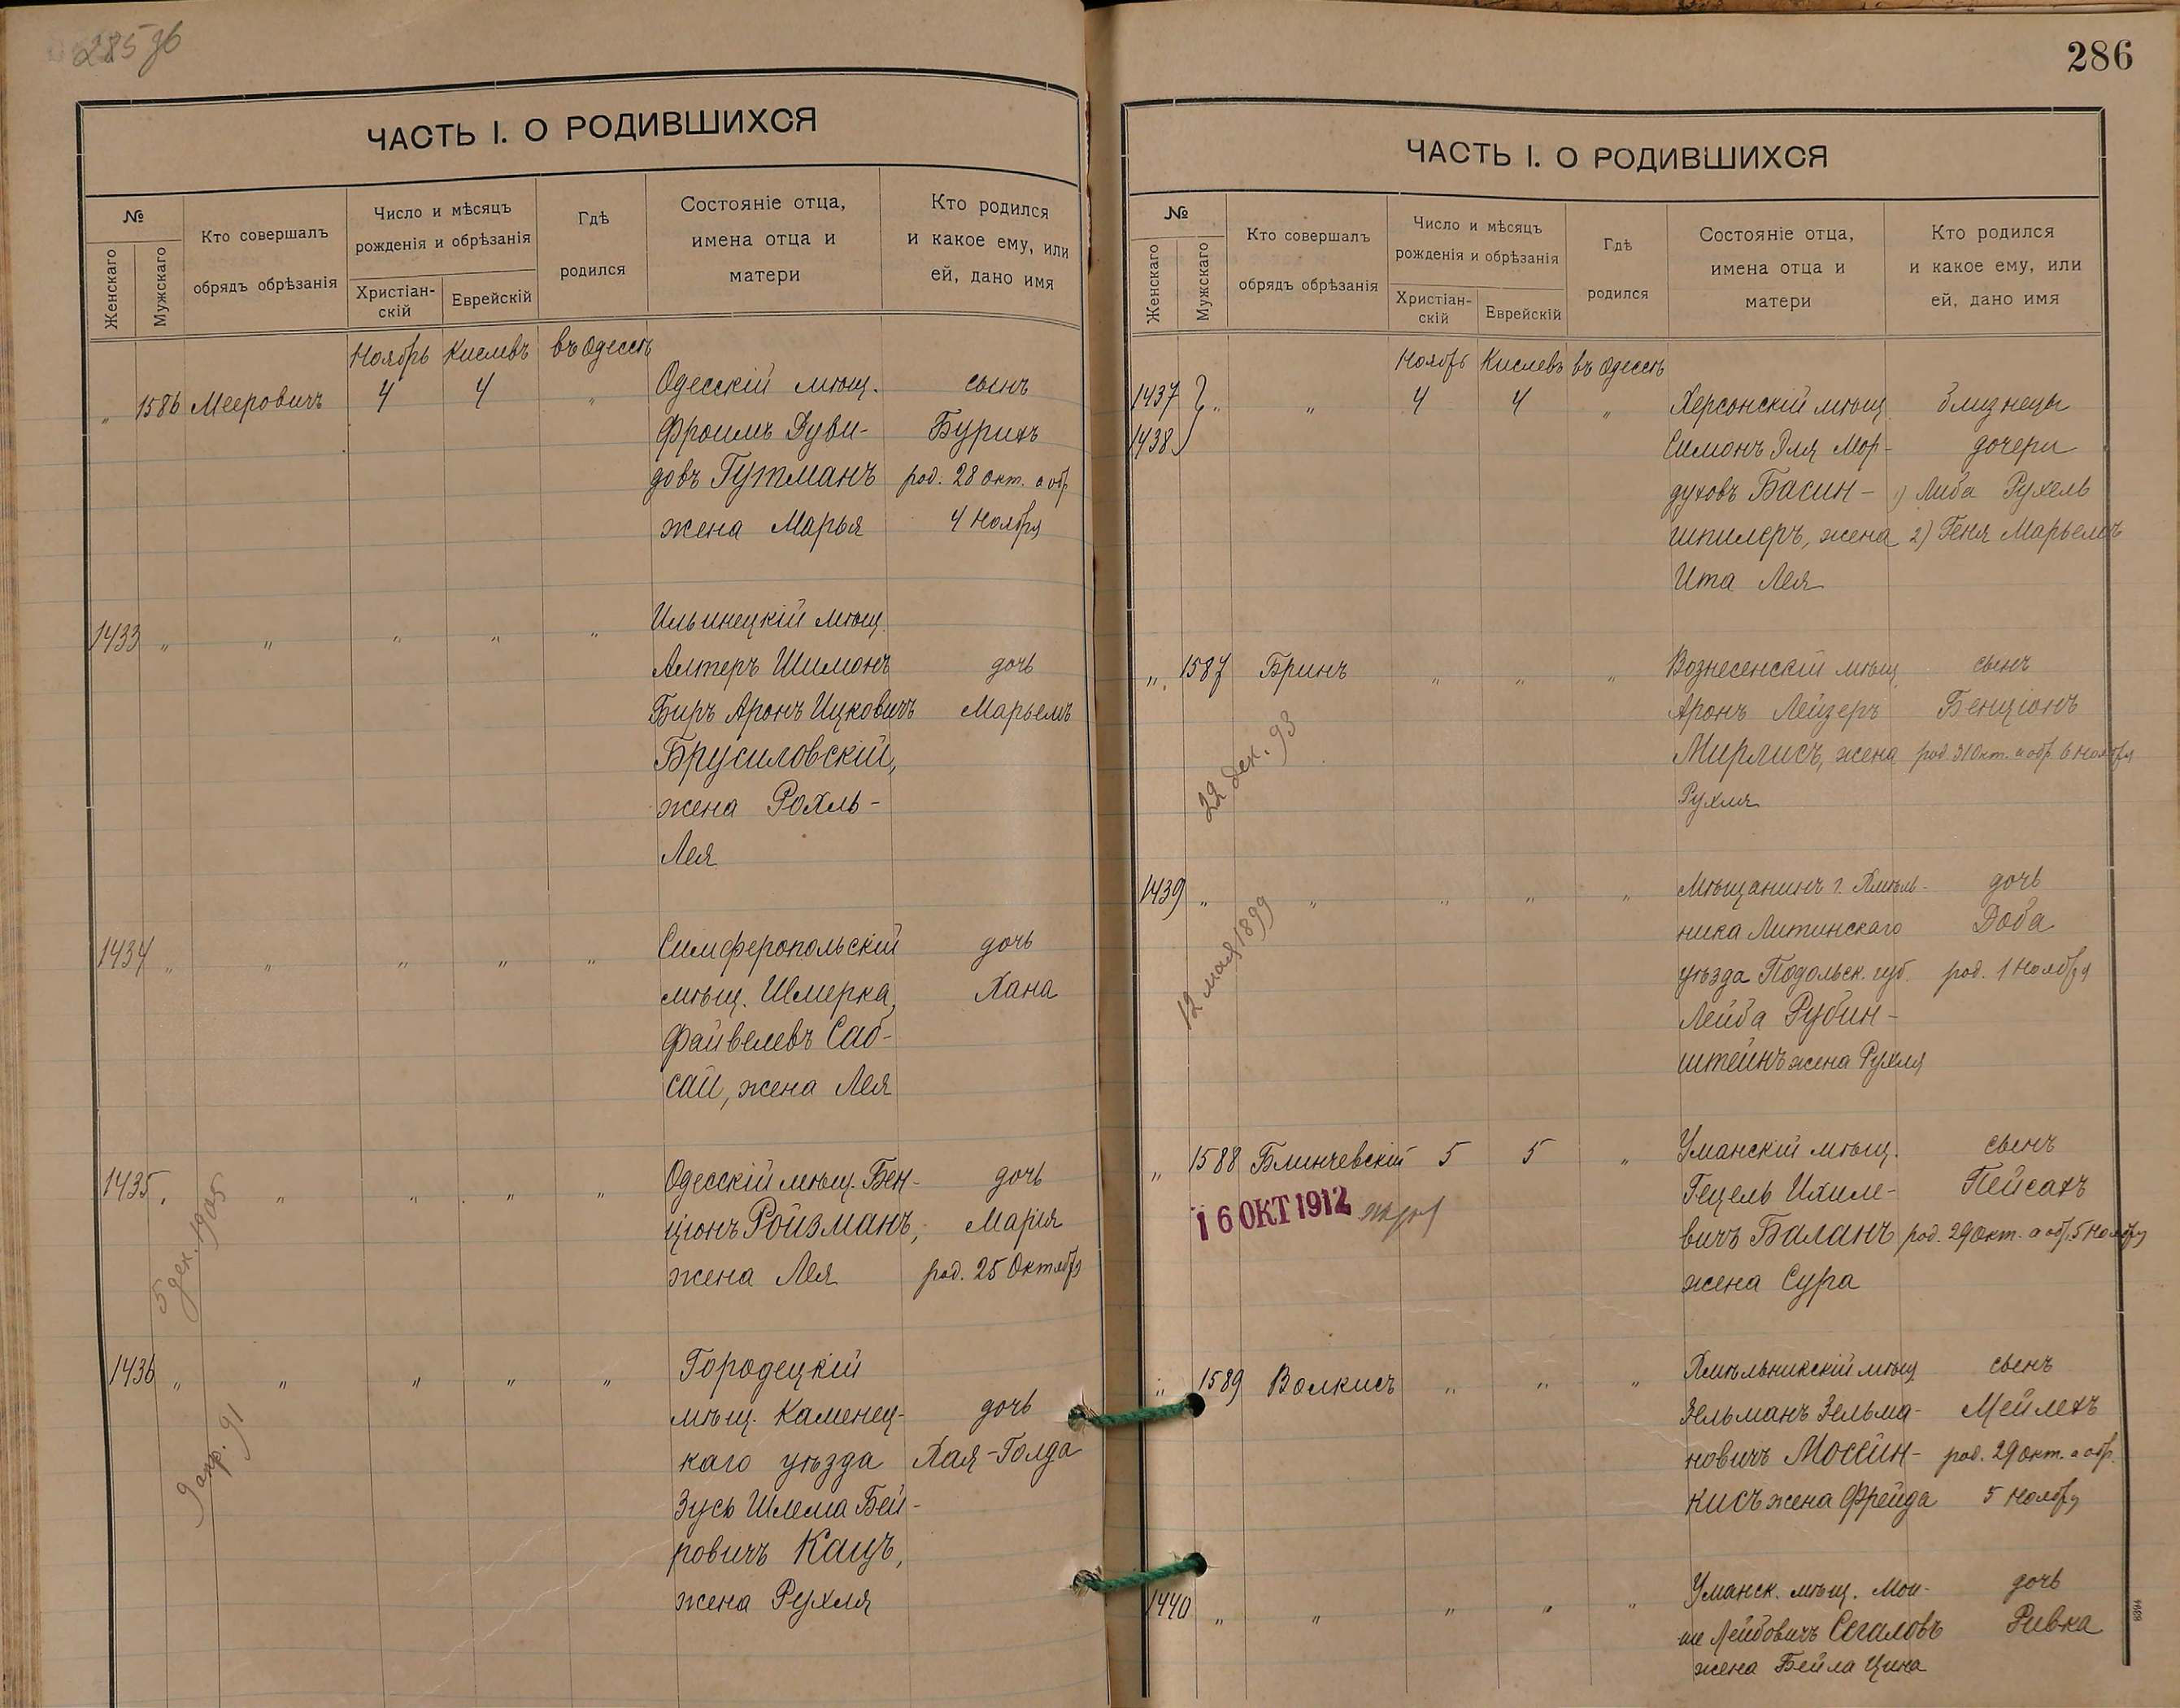 285 об
ЧАСТЬ I. О РОДИВШИХСЯ
№
Женскаго
Мужскаго
Кто совершалъ
обрядъ обрѣзанія
Число и мѣсяцъ
рожденія и обрѣзанія
Христіан-
скій
Еврейскій
Гдѣ
родился
Состояніе отца,
имена отца и
матери
Кто родился
и какое ему, или
ей, дано имя
Ноябрь Кислевъ въ Одессѣ
" 1586 Мееровичъ 4 4 " Одесскій мѣщ. сынъ
Фроимъ Дуви- Бурихъ
довъ Гутманъ род. 28 окт. а обр
жена Марья 4 Ноября
1433 " " " " " Ильинецкій мѣщ.
Алтеръ Шимонъ дочь
Биръ Аронъ Ицковичъ Марьемъ
Брусиловскій,
жена Рохль-
Лея
1434 " " " " " Симферопольскій дочь
мѣщ. Шмерка Хана
Файвелевъ Саб-
сай, жена Лея
1435 " " " " " Одесскій мѣщ. Бен- дочь
ціонъ Ройзманъ, Марія
жена Лея род. 25 Октября
5 дек. 1905
1436 " " " " " Городецкій
мѣщ. Каменец- дочь
каго уѣзда Хая-Голда
Зусь Шлема Бей-
ровичъ Кацъ,
жена Рухля
9 апр. 91
286
ЧАСТЬ I. О РОДИВШИХСЯ
№
Женскаго
Мужскаго
Кто совершалъ
обрядъ обрѣзанія
Число и мѣсяцъ
рожденія и обрѣзанія
Христіан-
скій
Еврейскій
Гдѣ
родился
Состояніе отца,
имена отца и
матери
Кто родился
и какое ему, или
ей, дано имя
Ноябрь Кислевъ въ Одессѣ
1437 " " 4 4 " Херсонскій мѣщ. близнецы
1438 Симонъ Эля Мор- дочери
духовъ Басин- 1) Либа Рухель
шпилеръ, жена 2) Геня Марьемъ
Ита Лея
" 1587 Бринъ " " " Вознесенскій мѣщ. сынъ
Аронъ Лейзеръ Бенціонъ
Мирлисъ, жена род. 31 Окт. а обр. 6 Ноября
Рухля
22 дек. 93
1439 " " " " " Мѣщанинъ г. Хмѣль- дочь
ника Литинскаго Доба
уѣзда Подольск. губ. род. 1 Ноября
Лейба Рубин-
штейнъ жена Рухля
12 мая 1899
" 1588 Блинчевскій 5 5 " Уманскій мѣщ. сынъ
Гецель Ихиле- Пейсахъ
вичъ Баланъ род. 29 Окт. а обр. 5 Ноября
жена Сура
16 ОКТ 1912
" 1589 Волкисъ " " " Хмѣльникскій мѣщ. сынъ
Зельманъ Зельма- Мейлехъ
новичъ Мосейн- род. 29 окт. а обр.
кисъ жена Фрейда 5 Ноября
1440 " " " " " Уманск. мѣщ. Мои- дочь
ше Лейбовичъ Сегаловъ Ривка
жена Бейла Цина